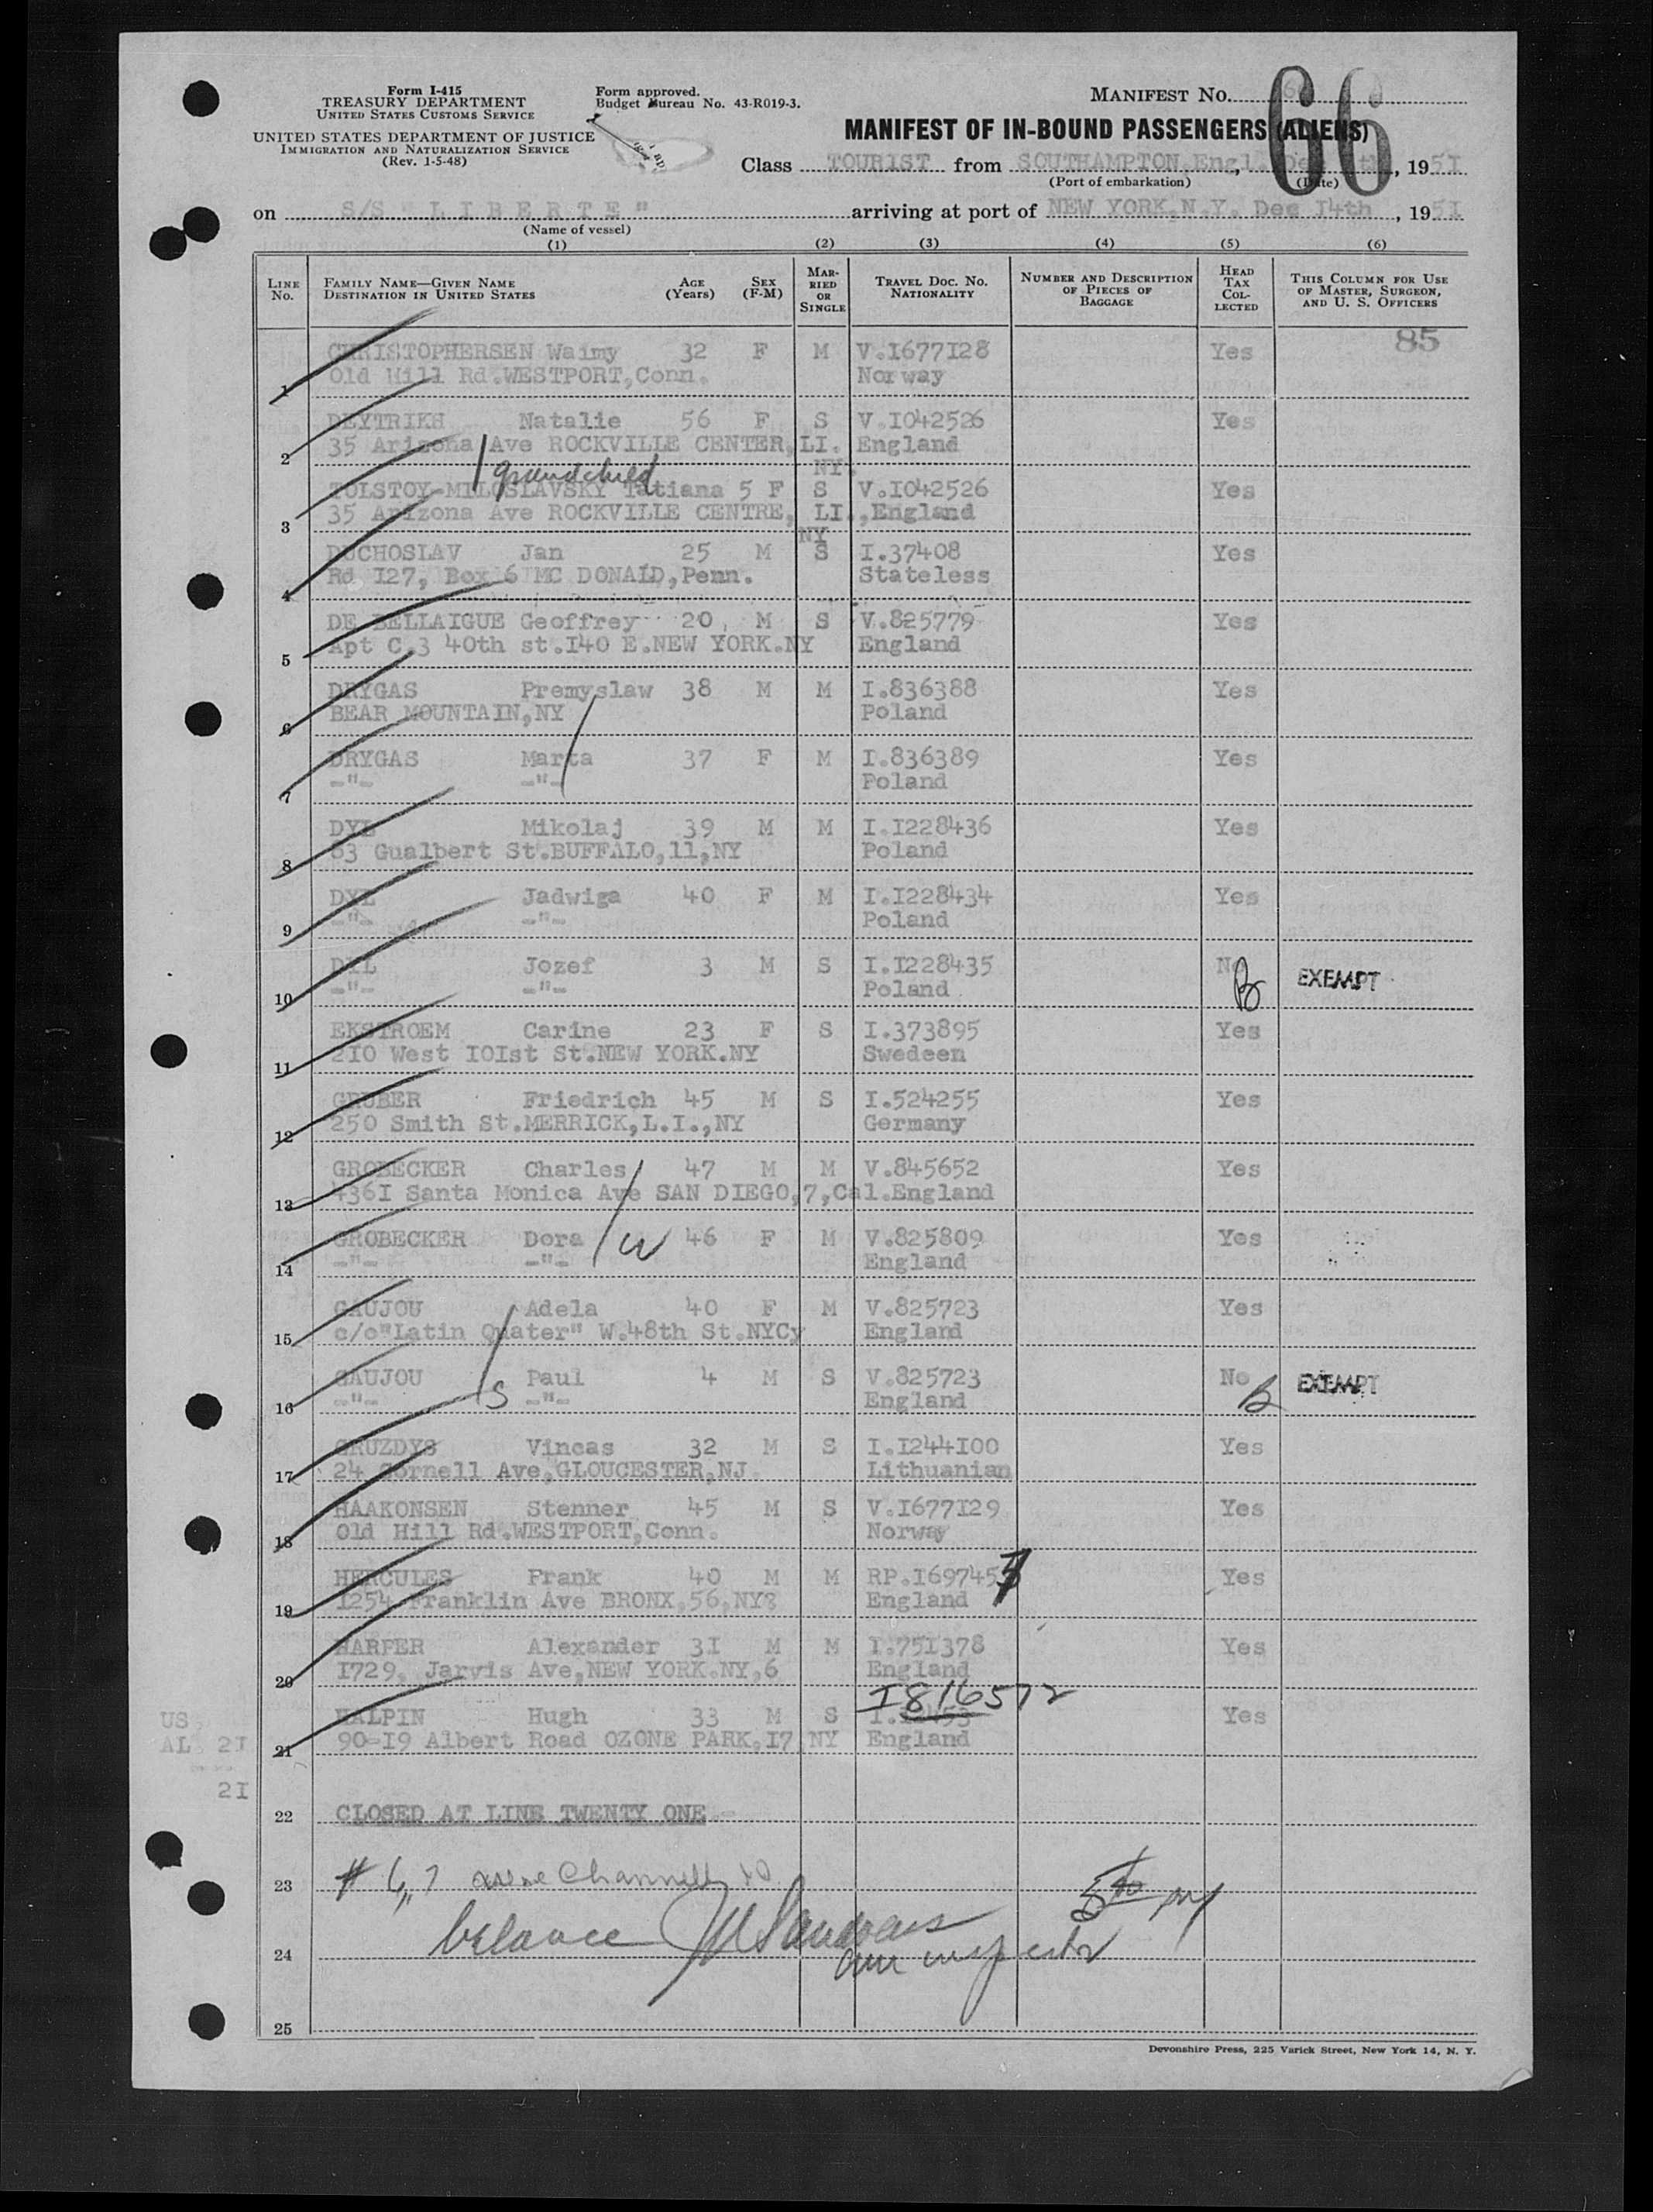 Form I-415
TREASURY DEPARTMENT
UNITED STATES CUSTOMS SERVICE
UNITED STATES DEPARTMENT OF JUSTICE
IMMIGRATION AND NATURALIZATION SERVICE
(Rev. 1-5-48)
Form approved.
Budget Bureau No. 43-R019-3.
MANIFEST NO.
66
MANIFEST OF IN-BOUND PASSENGERS (ALIENS)
Class TOURIST from SOUTHAMPTON,Engl., 1951
(Port of embarkation) (Date)
on S/S " L I B E R T E " arriving at port of NEW YORK,N.Y. Dec 14th, 1951
(Name of vessel)
(1) (2) (3) (4) (5) (6)
LINE No. FAMILY NAME—GIVEN NAME DESTINATION IN UNITED STATES AGE (Years) SEX (F-M) MARRIED OR SINGLE TRAVEL DOC. NO. NATIONALITY NUMBER AND DESCRIPTION OF PIECES OF BAGGAGE HEAD TAX COLLECTED THIS COLUMN FOR USE OF MASTER, SURGEON, AND U. S. OFFICERS
85
CHRISTOPHERSEN Waimy 32 F M V.1677128 Yes
1 Old Hill Rd.WESTPORT,Conn. Norway
DEYTRIKH Natalie 56 F S V.1042526 Yes
2 35 Arizona Ave ROCKVILLE CENTER,LI. England
NY.
grandchild
TOLSTOY-MILOSLAVSKY Tatiana 5 F S V.1042526 Yes
3 35 Arizona Ave ROCKVILLE CENTRE, LI.,England
NY
DUCHOSLAV Jan 25 M S I.37408 Yes
4 Rd 127, Box 6 MC DONALD,Penn. Stateless
DE BELLAIGUE Geoffrey 20 M S V.825779 Yes
5 Apt C.3 40th st.I40 E.NEW YORK.NY England
DRYGAS Premyslaw 38 M M I.836388 Yes
6 BEAR MOUNTAIN,NY Poland
DRYGAS Marta 37 F M I.836389 Yes
7 -"- -"- Poland
DYL Mikolaj 39 M M I.I228436 Yes
8 83 Gualbert St.BUFFALO,11,NY Poland
DYL Jadwiga 40 F M I.I228434 Yes
9 -"- -"- Poland
DYL Jozef 3 M S I.I228435 No EXEMPT
10 -"- -"- Poland
EKSTROEM Carine 23 F S I.373895 Yes
11 210 West IOIst St.NEW YORK.NY Swedeen
GRUBER Friedrich 45 M S I.524255 Yes
12 250 Smith St.MERRICK,L.I.,NY Germany
GROBECKER Charles 47 M M V.845652 Yes
13 436I Santa Monica Ave SAN DIEGO,7,Cal.England
GROBECKER Dora W 46 F M V.825809 Yes
14 -"- -"- England
GAUJOU Adela 40 F M V.825723 Yes
15 c/o"Latin Quater" W.48th St.NYCy England
GAUJOU Paul 4 M S V.825723 No EXEMPT
16 -"- S -"- England
GRUZDYS Vincas 32 M S I.I244I00 Yes
17 24 Cornell Ave,GLOUCESTER,NJ. Lithuanian
HAAKONSEN Stenner 45 M S V.I677I29 Yes
18 Old Hill Rd.WESTPORT,Conn. Norway
HERCULES Frank 40 M M RP.I697457 Yes
19 1254 Franklin Ave BRONX,56,NY? England
HARPER Alexander 3I M M I.75I378 Yes
20 I729, Jarvis Ave,NEW YORK.NY,6 England
I816572
HALPIN Hugh 33 M S Yes
21 90-I9 Albert Road OZONE PARK,I7 NY England
US
AL. 2I
2I
22 CLOSED AT LINE TWENTY ONE
23 # 6,7
24 balance
25
Devonshire Press, 225 Varick Street, New York 14, N. Y.